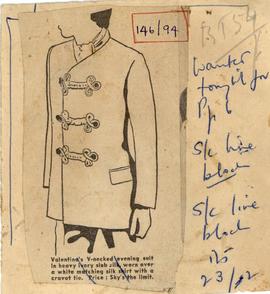 146/94
BT54
Wanted
tonight for
Pp 6
S/c line
block
S/c line
block
23/12
Valentino's V-necked evening suit
in heavy ivory slub silk, worn over
a white matching silk shirt with a
cravat tie. Price: Sky's the limit.